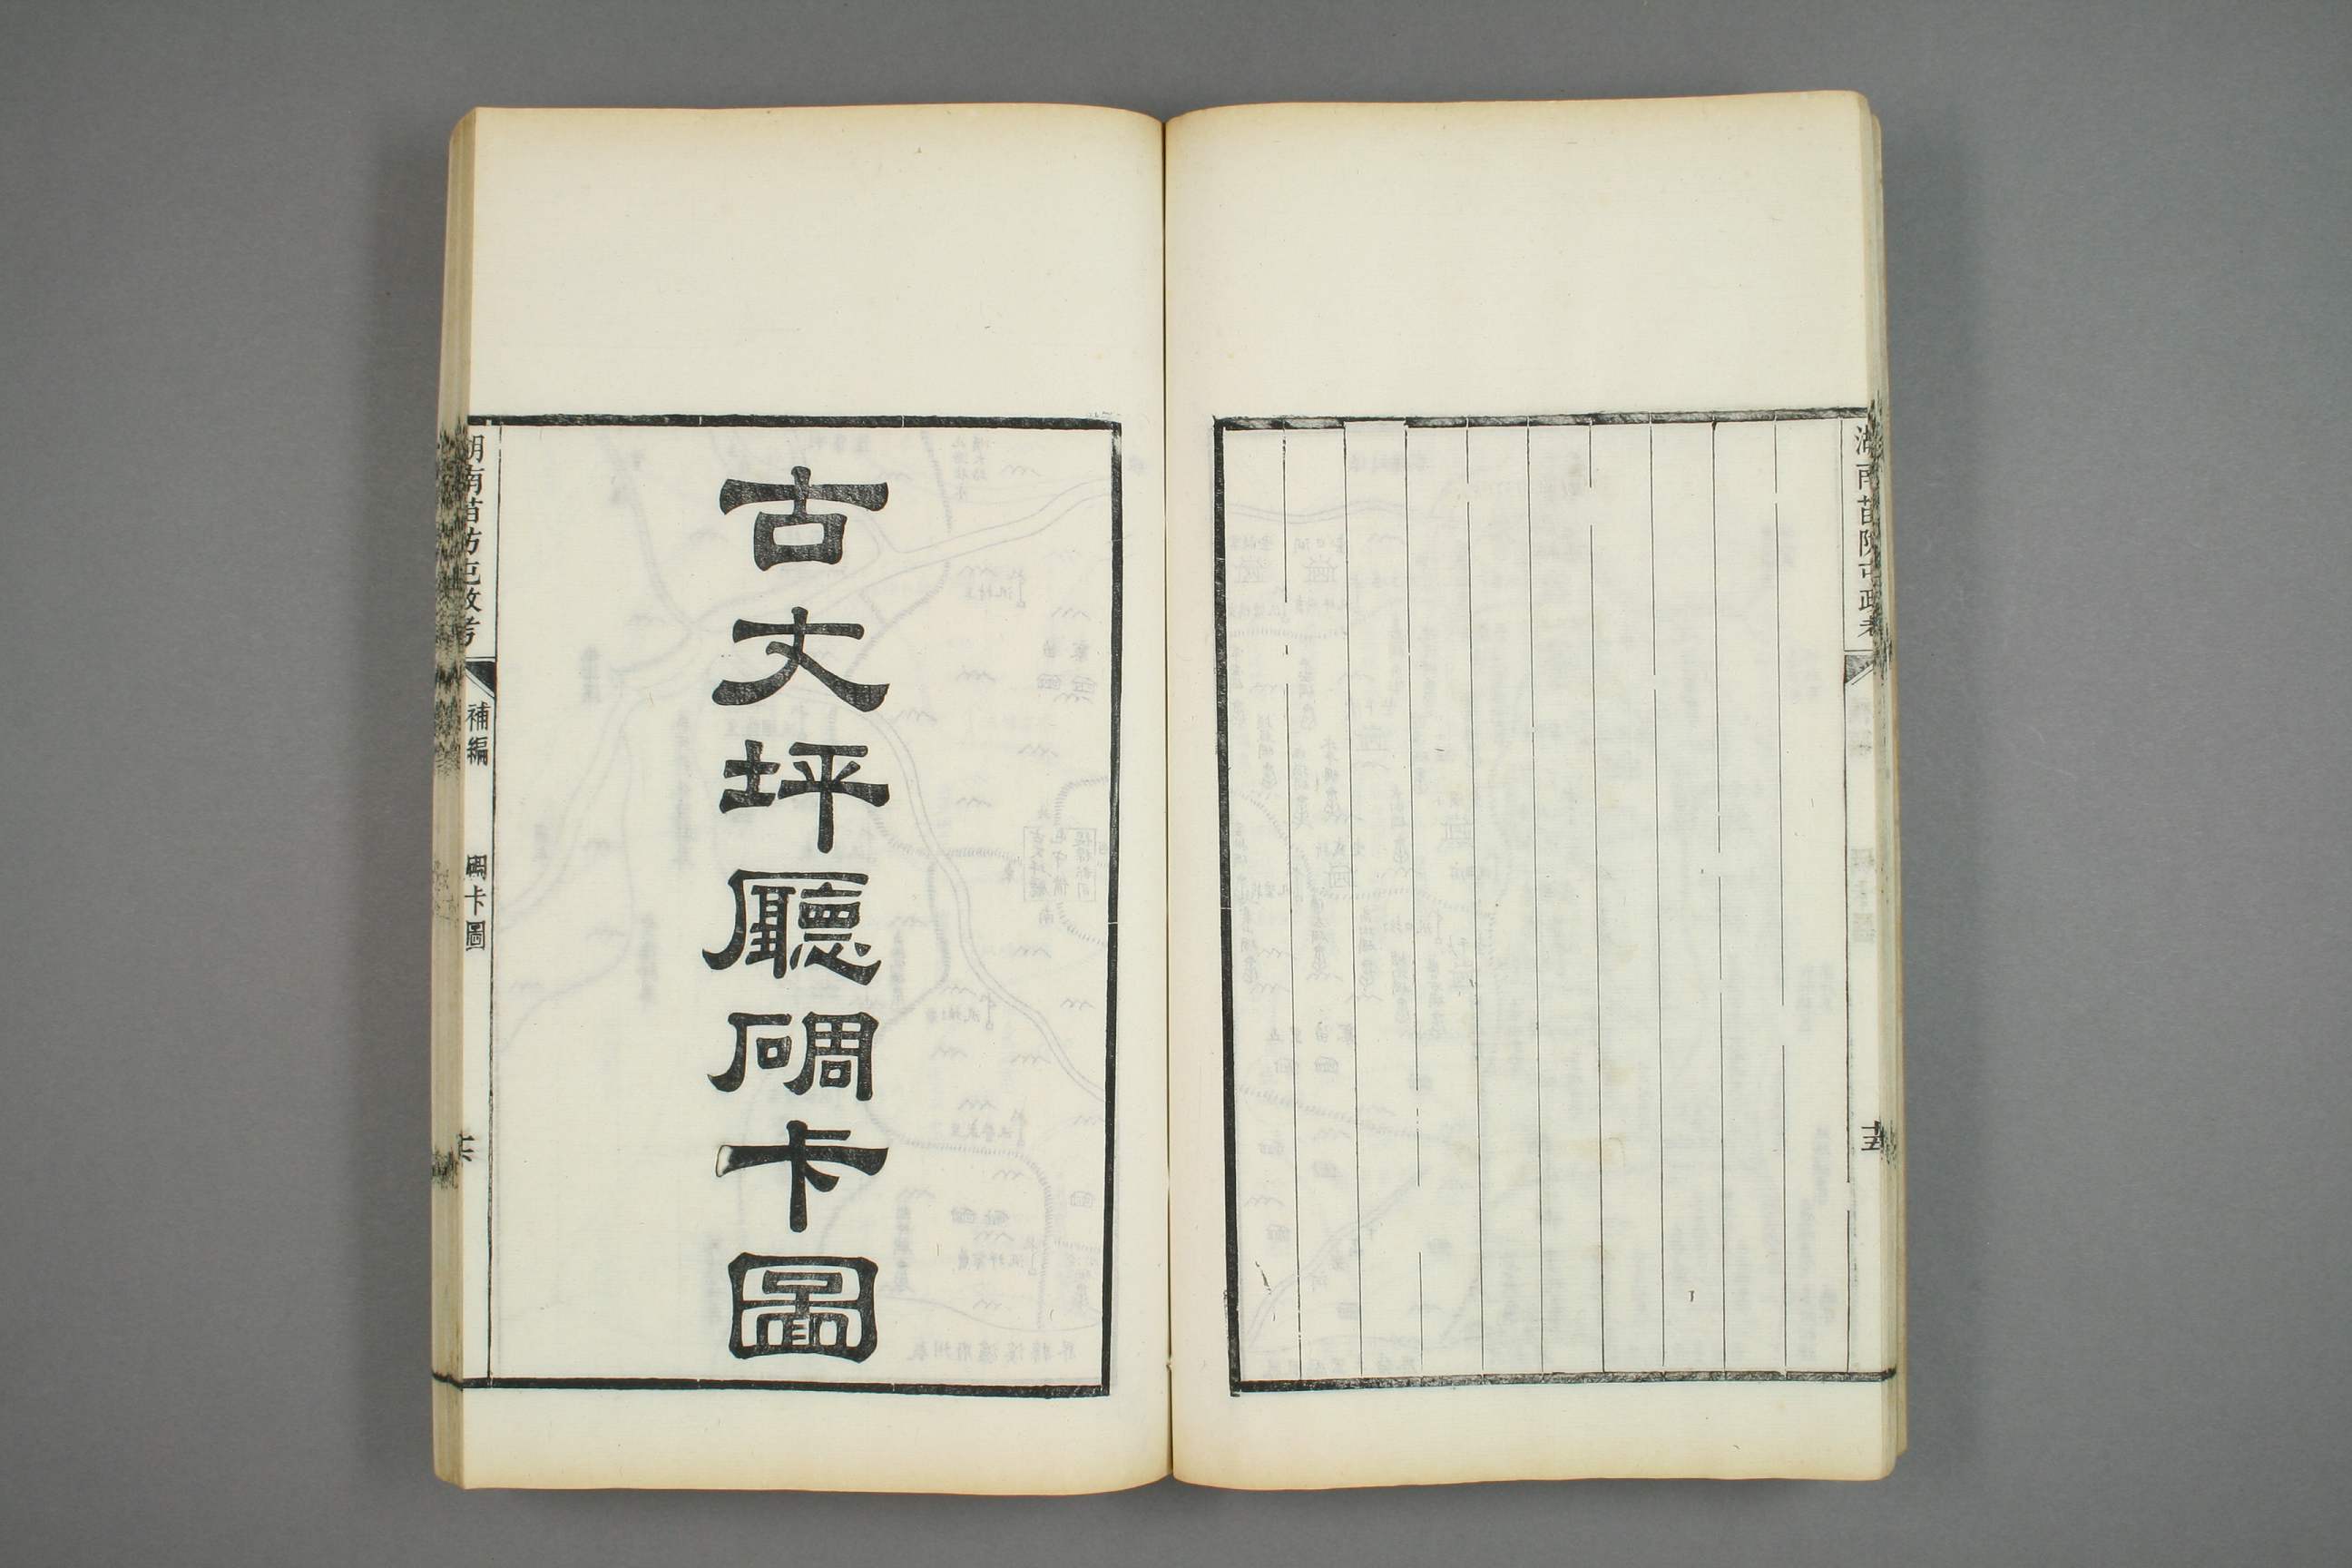 湖南苗防屯政考
十五
古丈坪廳碉卡圖
湖南苗防屯政考
補編
碉卡圖
十六